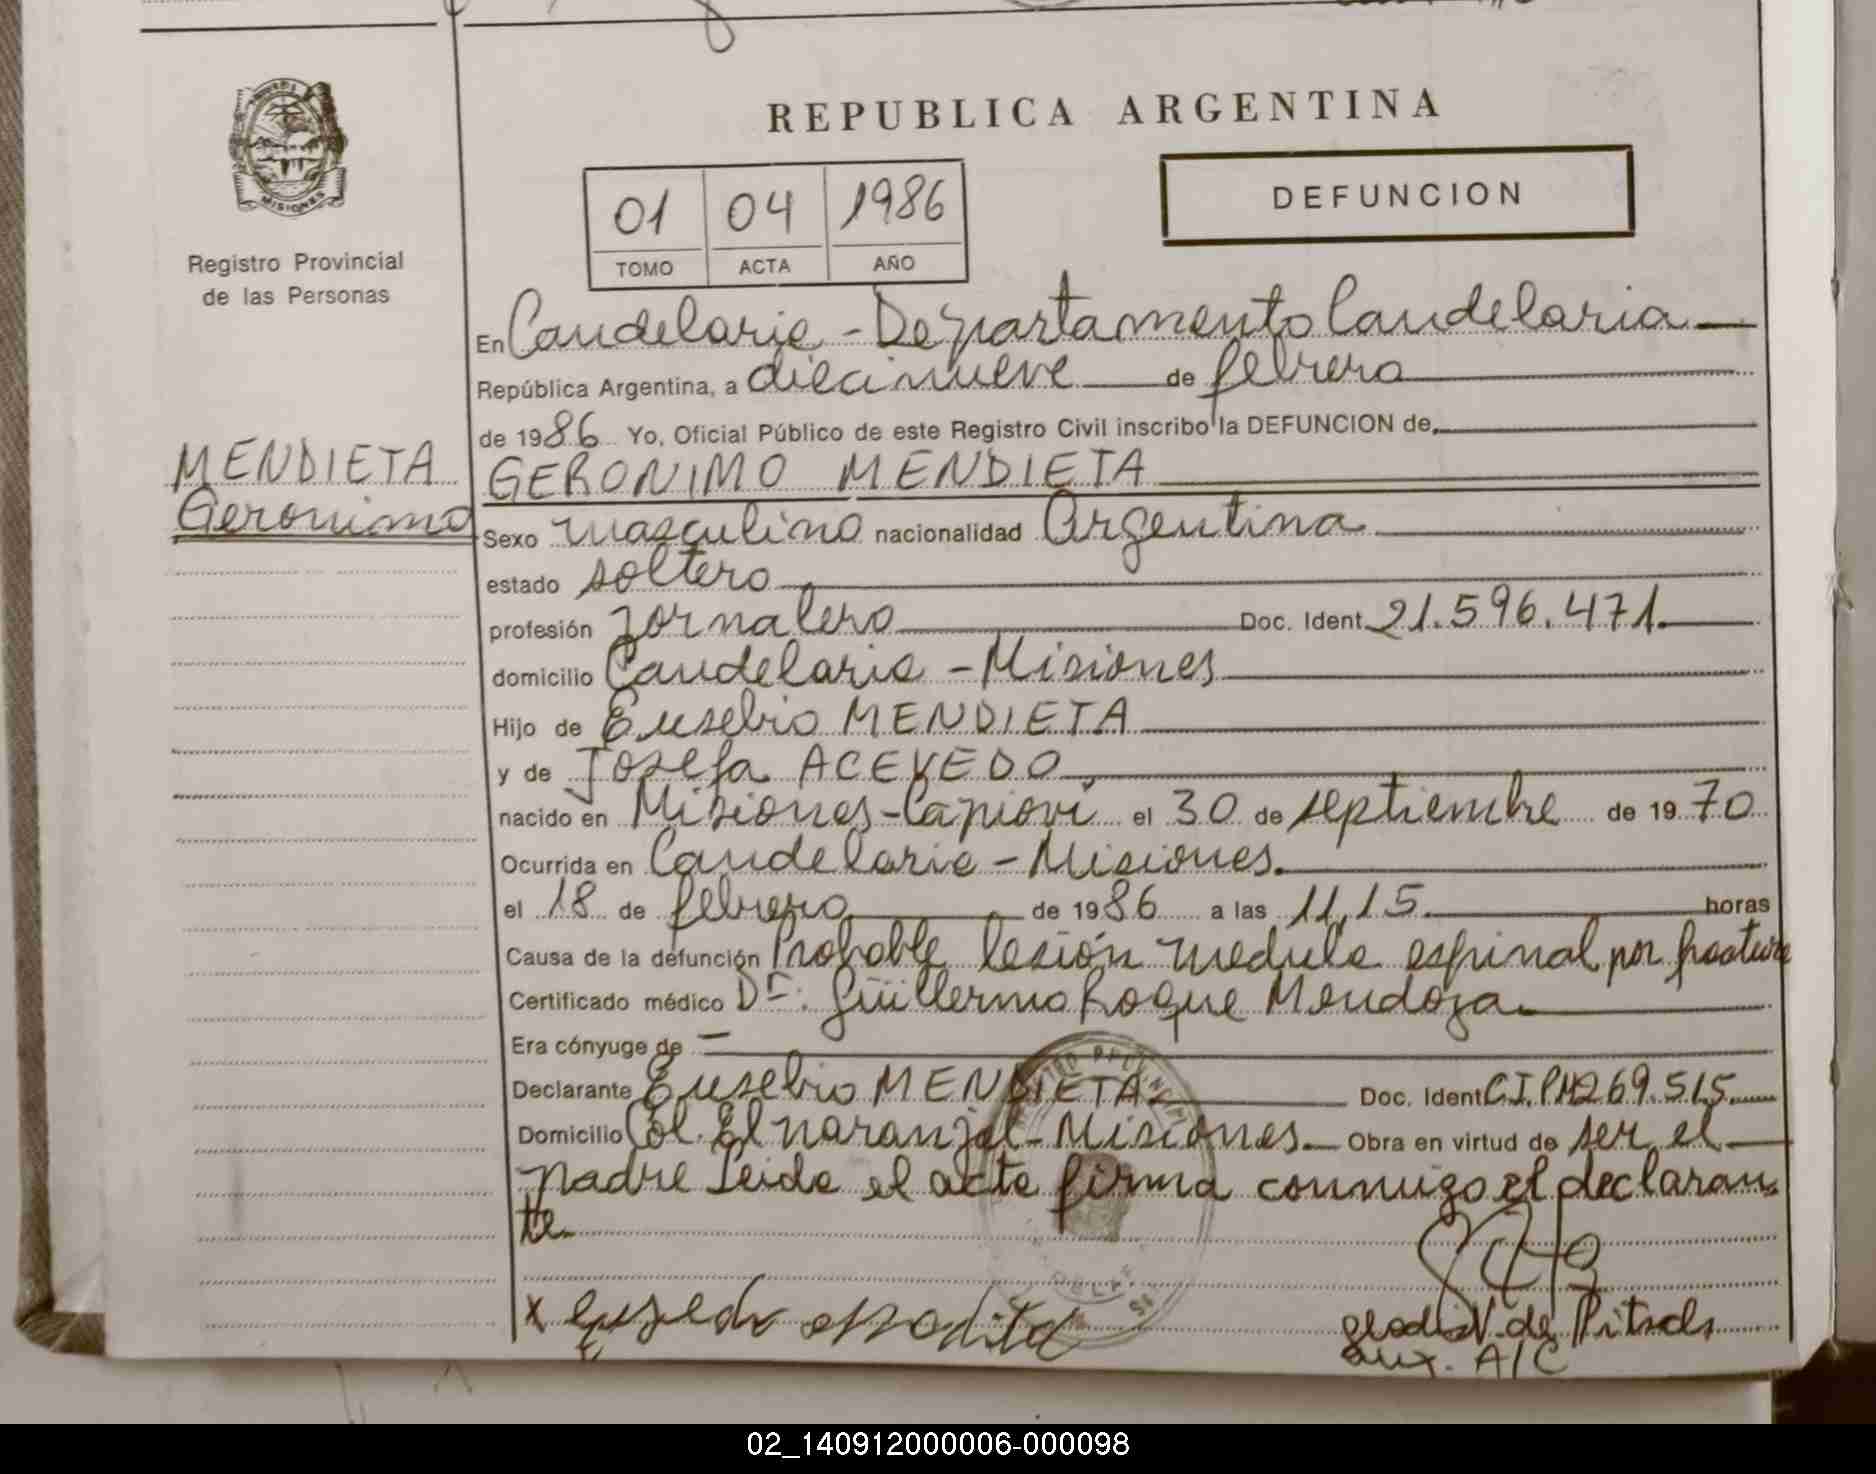 REPUBLICA ARGENTINA
MISIONES
Registro Provincial
de las Personas
01 04 1986
TOMO ACTA AÑO
DEFUNCION
En Candelaria - Departamento Candelaria
República Argentina, a diecinueve de febrero
de 1986 Yo, Oficial Público de este Registro Civil inscribo la DEFUNCION de
MENDIETA
Geronimo
GERONIMO MENDIETA
Sexo masculino nacionalidad Argentina
estado soltero
profesión jornalero Doc. Ident. 21.596.471.
domicilio Candelaria - Misiones
Hijo de Eusebio MENDIETA
y de Josefa ACEVEDO
nacido en Misiones - Capioví el 30 de septiembre de 1970
Ocurrida en Candelaria - Misiones.
el 18 de febrero de 1986 a las 11,15 horas
Causa de la defunción Probable lesión medula espinal por fractura
Certificado médico Dr: Guillermo Roque Mendoza
Era cónyuge de —
Declarante Eusebio MENDIETA Doc. Ident C.I. 269.515
Domicilio Col. El naranjal - Misiones Obra en virtud de ser el
padre Leida el acta firma conmigo el declaran
te
X
aux. A/C
02_140912000006-000098